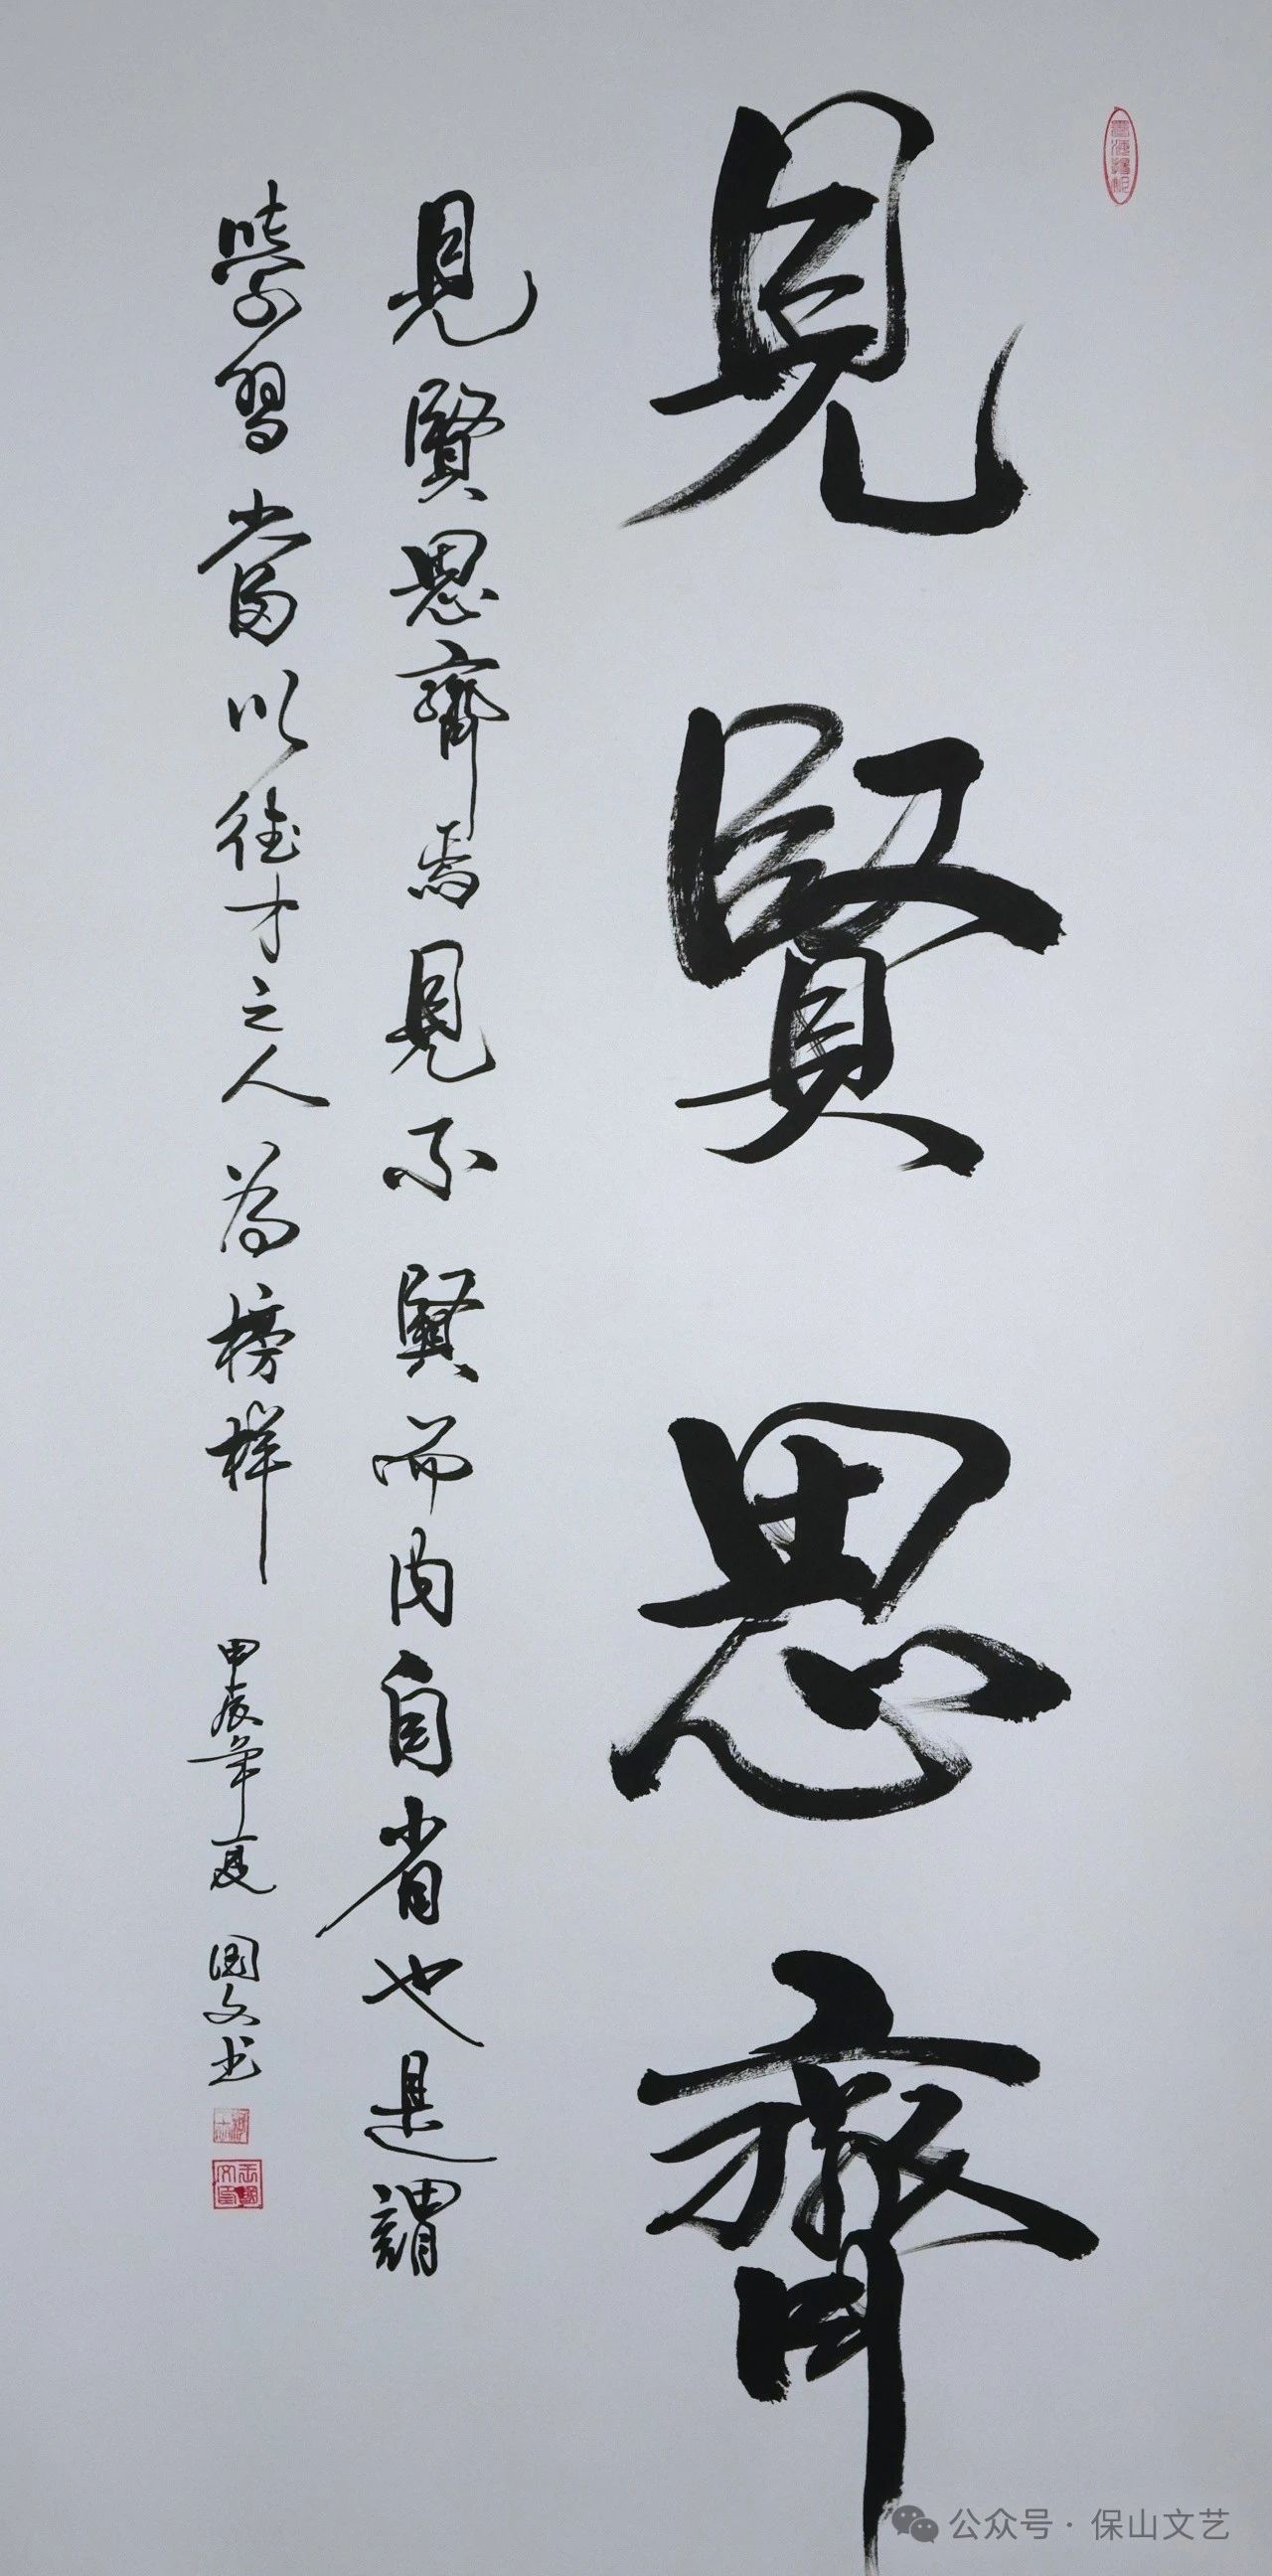 見賢思齊
見賢思齊焉見不賢而内自省也是謂
學習當以德才之人為榜樣 甲辰年夏 國文书
公众号 · 保山文艺